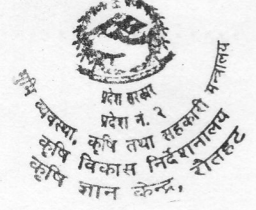 प्रदेश सरकार
प्रदेश नं. २
व्यवस्था, कृषि तथा सहकारी मन्त्रालय
कृषि विकास निर्देशनालय
कृषि ज्ञान केन्द्र, रौतहट